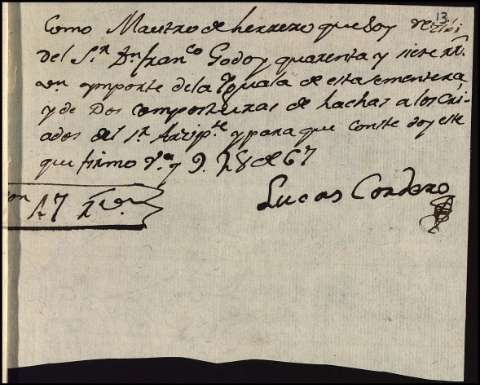 13
Como Maestro de herrero que Soy recibi
del Sr. Dn. franco Godoy quarenta y siete rrs.
vn. ymporte de la Yguala de esta sementera
y de Dos composturas de hachas a los cri-
ados del Sr. Arzipte. y para que conste doy este
que firmo 9. 28 de 67
Lucas Cordero
47 rs. von